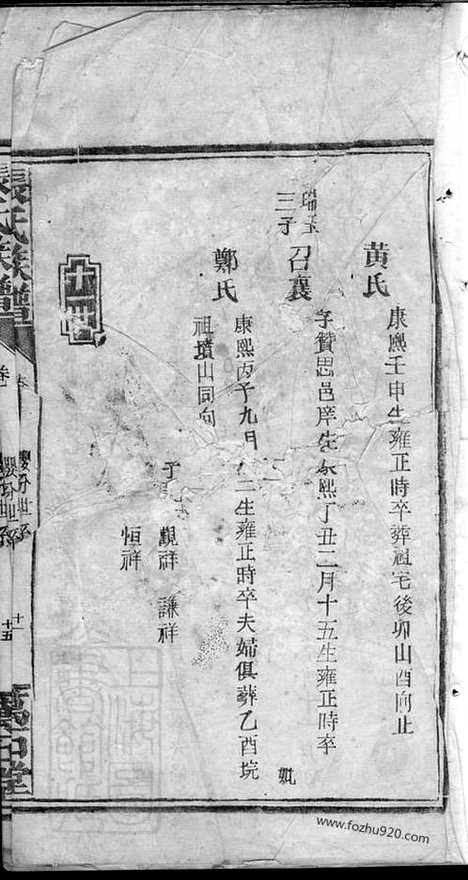 黄氏
康熙壬申生雍正時卒葬祖宅後卯山酉向止
瑞玉
三子
召襄
字贊思邑庠生康熙丁丑二月十五生雍正時卒
妣
鄭氏
康熙丙子九月二生雍正時卒夫婦俱葬乙酉垸
祖墳山同向
子
觀祥 謙祥
恒祥
十四
張氏族譜
卷
嬰分世系
十五
www.fozhu920.com